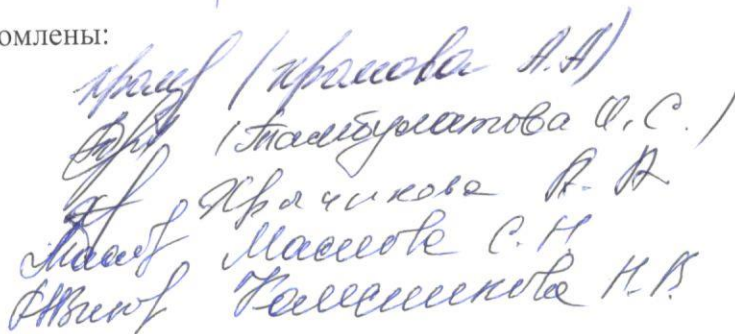 омлены:
(Храмова А.А)
(Тамбулатова О.С.)
Хрячикова А. А
Маслова С. Н
Колесникова Н.В.